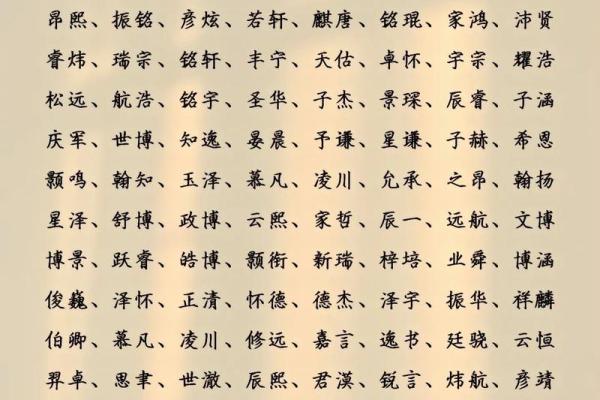 昂熙、振铭、彦炫、若轩、麒唐、铭琨、家鸿、沛贤
睿炜、瑞宗、铭轩、丰宁、天估、卓怀、宇宗、耀浩
松远、航浩、铭宇、圣华、子杰、景琛、辰睿、子涵
庆军、世博、知逸、晏晨、予谦、星谦、子赫、希恩
颢鸣、翰知、玉泽、慕凡、凌川、允承、之昂、翰扬
星泽、舒博、政博、云熙、家哲、辰一、远航、文博
博景、跃睿、皓博、颢衔、新瑞、梓培、业舜、博涵
俊巍、泽怀、正清、怀德、德杰、泽宇、振华、祥麟
伯卿、慕凡、凌川、修远、嘉言、逸书、廷骁、云恒
羿卓、思聿、世澈、辰熙、君漠、锐言、炜航、彦靖